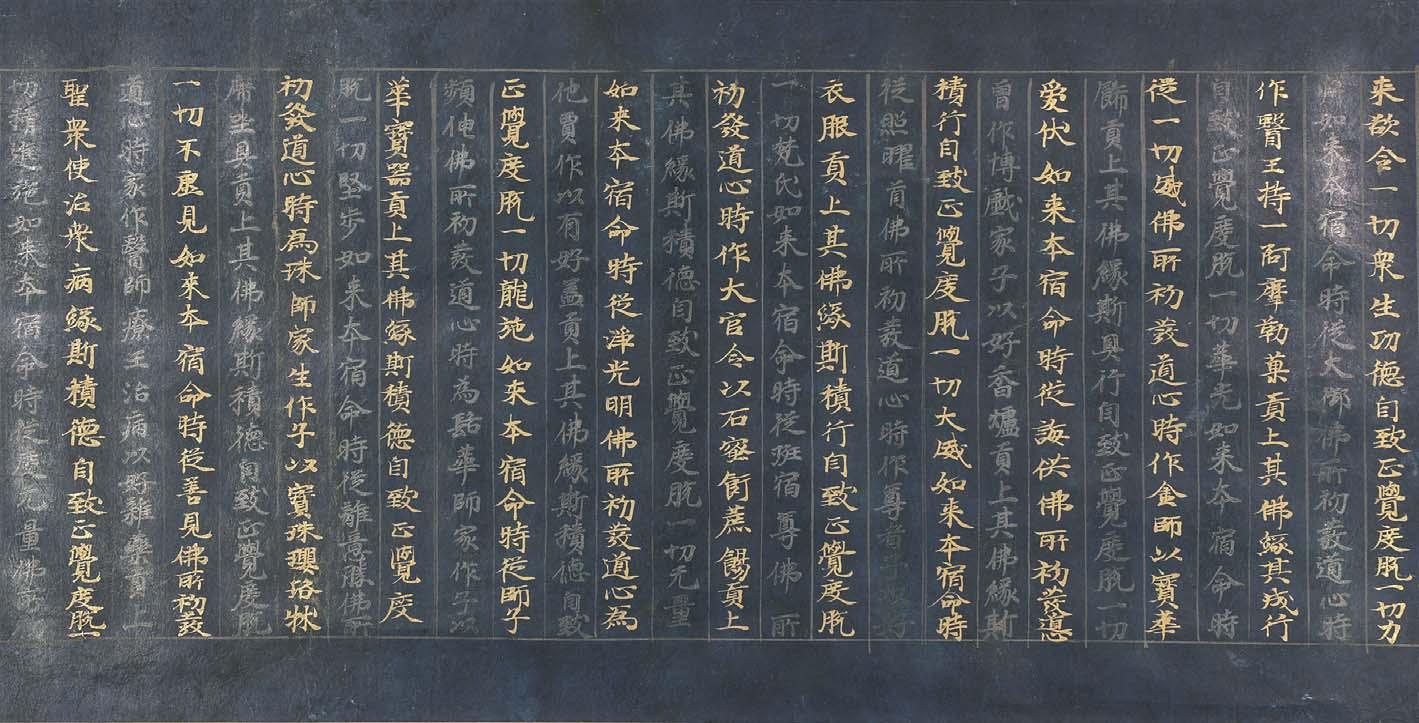 来欲令一切衆生功德自致正覺度脱一切力
將如来本宿命時從大御佛所初發道心時
作醫王持一阿摩勒菓貢上其佛縁其成行
自致正覺度脱一切華光如来本宿命時
從一切威佛所初發道心時作金師以寶華
飾貢上其佛縁斯具行自致正覺度脱一切
愛伏如来本宿命時從誨供佛所初發道意
曾作博戲家子以好香爐貢上其佛縁斯
積行自致正覺度脱一切大威如来本宿命時
從照曜首佛所初發道心時作尊者子好
衣服貢上其佛縁斯積行自致正覺度脱
一切梵氏如来本宿命時從班宿尊佛所
初發道心時作大官令以石蜜蔗餳貢上
其佛縁斯積德自致正覺度脱一切无量
如来本宿命時從淨光明佛所初發道心為
他賈作以有好盖貢上其佛縁斯積德自致
正覺度脱一切龍施如来本宿命時從師子
頻伸佛所初發道心時為華師家作子以
華寶器貢上其佛縁斯積德自致正覺度
脱一切堅步如来本宿命時從離意勝佛所
初發道心時為珠師家生作子以寶珠瓔珞牀
席坐具貢上其佛縁斯積德自致正覺度脱
一切不虛見如来本宿命時從善見佛所初發
道心時家作醫師療王治病以好雜藥貢上
聖衆使治衆病縁斯積德自致正覺度脱一
切精進施如来本宿命時從度无量佛所